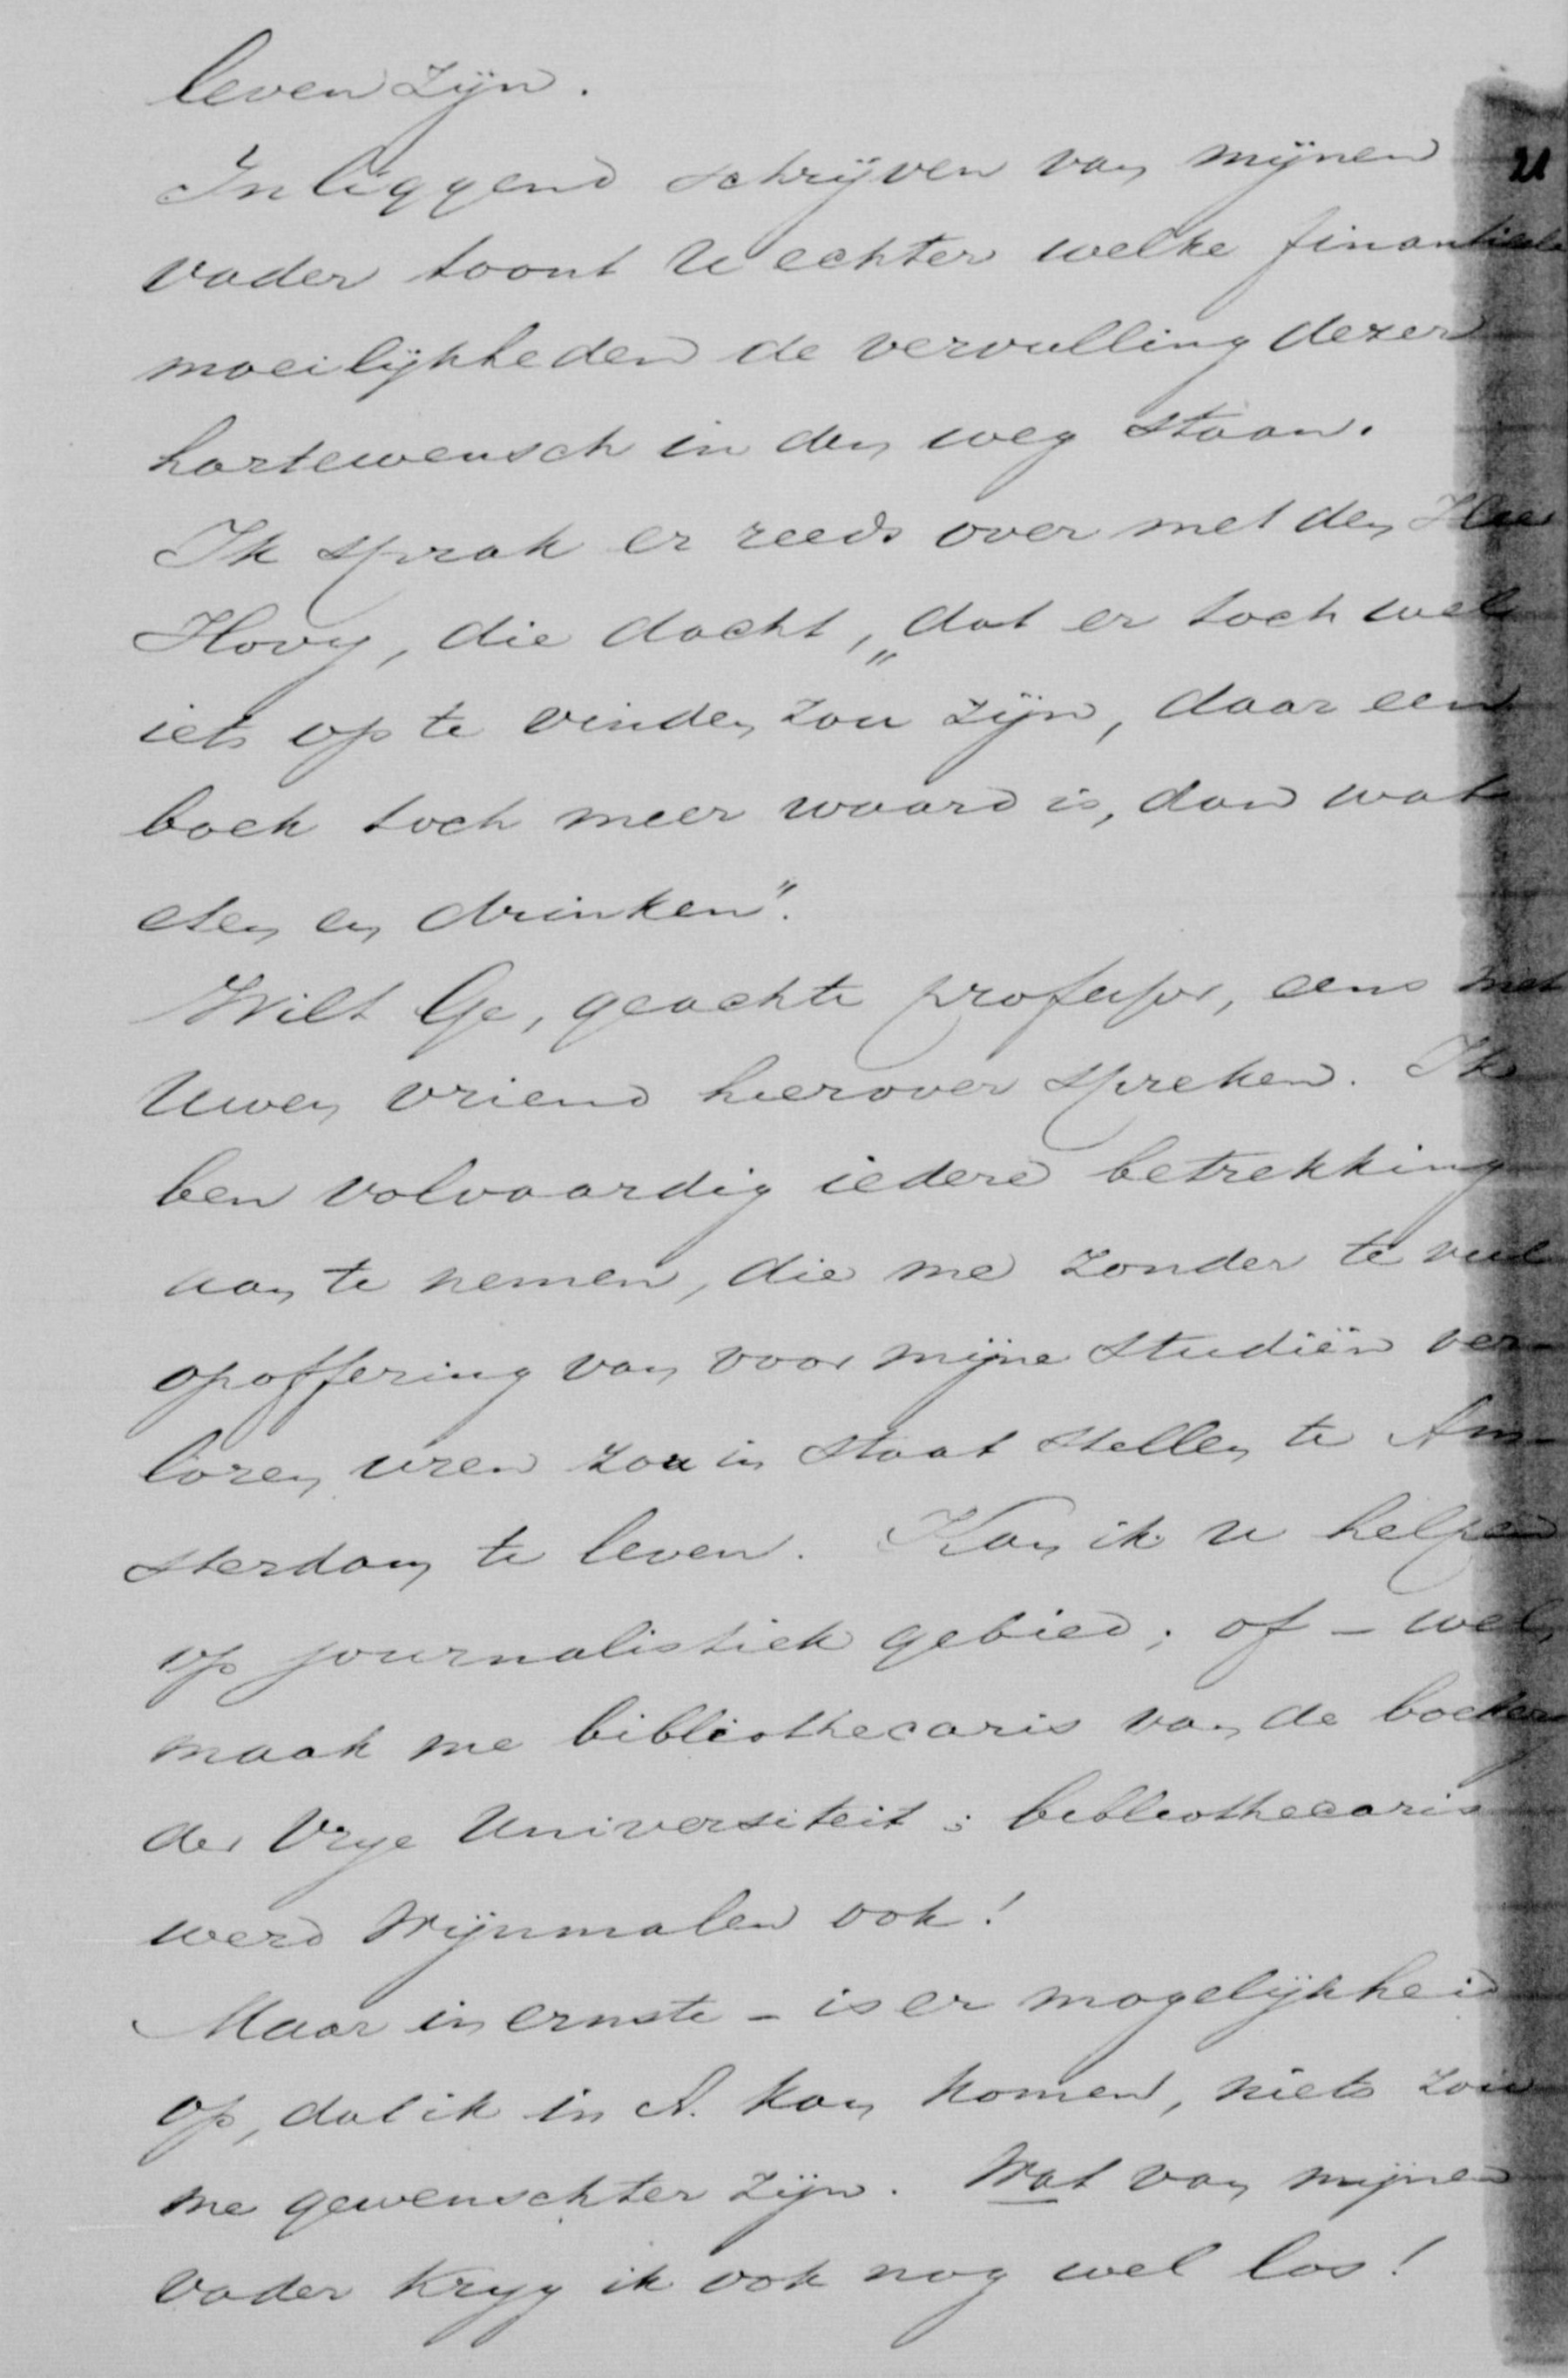 leven zijn.
Inliggend schrijven van mijnen
vader toont U echter welke finantieele
moeilijkheden de vervulling dezer
hartewensch in den weg staan.
Ik sprak er reeds over met den Heer
Hovy, die dacht, „dat er toch wel
iets op te vinden zou zijn, daar een
boek toch meer waard is, dan wat
eten en drinken".
Wilt Ge, geachte professor, eens met
Uwen vriend hierover spreken. Ik
ben volvaardig iedere betrekking
aan te nemen, die me zonder te veel
opoffering van voor mijne studiën ver-
loren uren zou in staat stellen te Am-
sterdam te leven. Kan ik U helpen
op journalistiek gebied; of - wel,
maak me bibliothecaris van de boeken
der Vrije Universiteit; bibliothecaris
werd Wijnmalen ook!
Maar in ernste - is er mogelijkheid
op, dat ik in A. kan komen, niets zou
me gewenschter zijn. Wat van mijnen
vader krijg ik ook nog wel los!